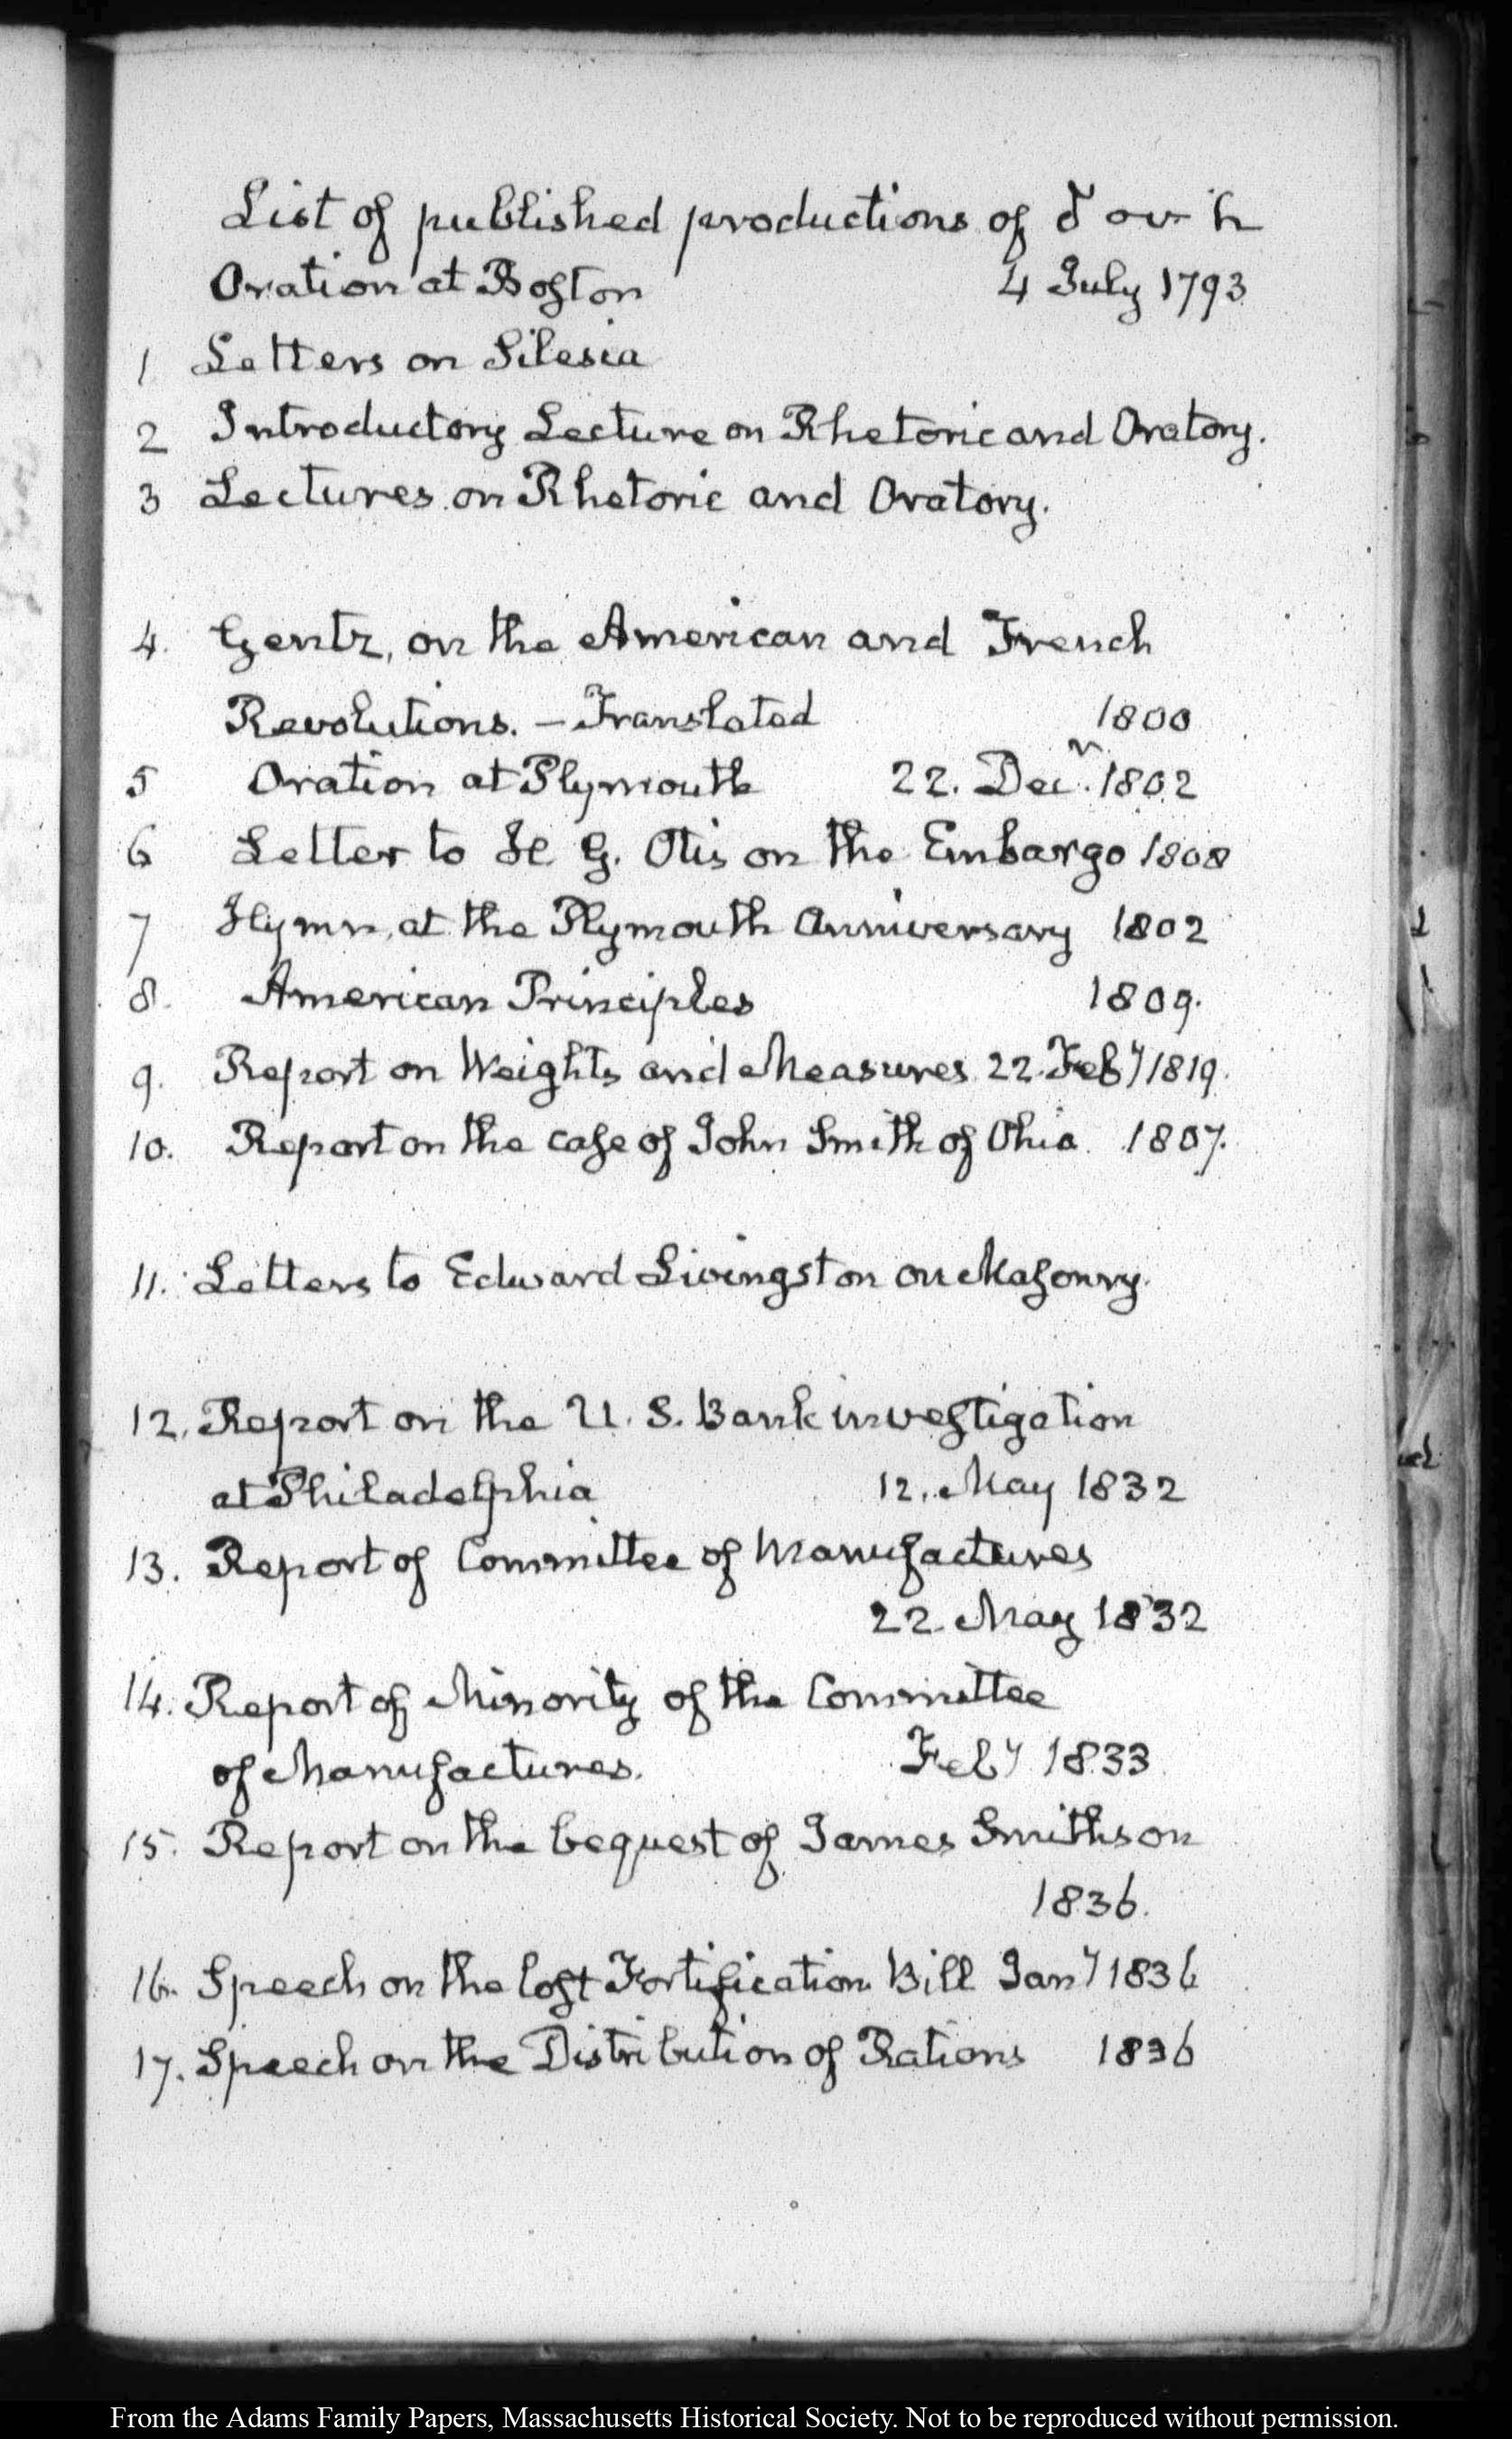 List of published productions of
Oration at Boston 4 July 1793
1 Letters on Silesia
2 Introductory Lecture on Rhetoric and Oratory.
3 Lectures on Rhetoric and Oratory.
4. Gentz, on the American and French
Revolutions. — Translated 1800
5 Oration at Plymouth 22. Decr. 1802
6 Letter to H. G. Otis on the Embargo 1808
7 Hymn, at the Plymouth Anniversary 1802
8. American Principles 1809.
9. Report on Weights and Measures 22. Feby 1819.
10. Report on the case of John Smith of Ohio. 1807.
11. Letters to Edward Livingston on Masonry.
12. Report on the U. S. Bank investigation
at Philadelphia 12. May 1832
13. Report of Committee of Manufactures
22. May 1832
14. Report of Minority of the Committee
of Manufactures. Feby 1833
15. Report on the bequest of James Smithson
1836.
16. Speech on the lost Fortification Bill Jany 1836
17. Speech on the Distribution of Rations 1836
From the Adams Family Papers, Massachusetts Historical Society. Not to be reproduced without permission.